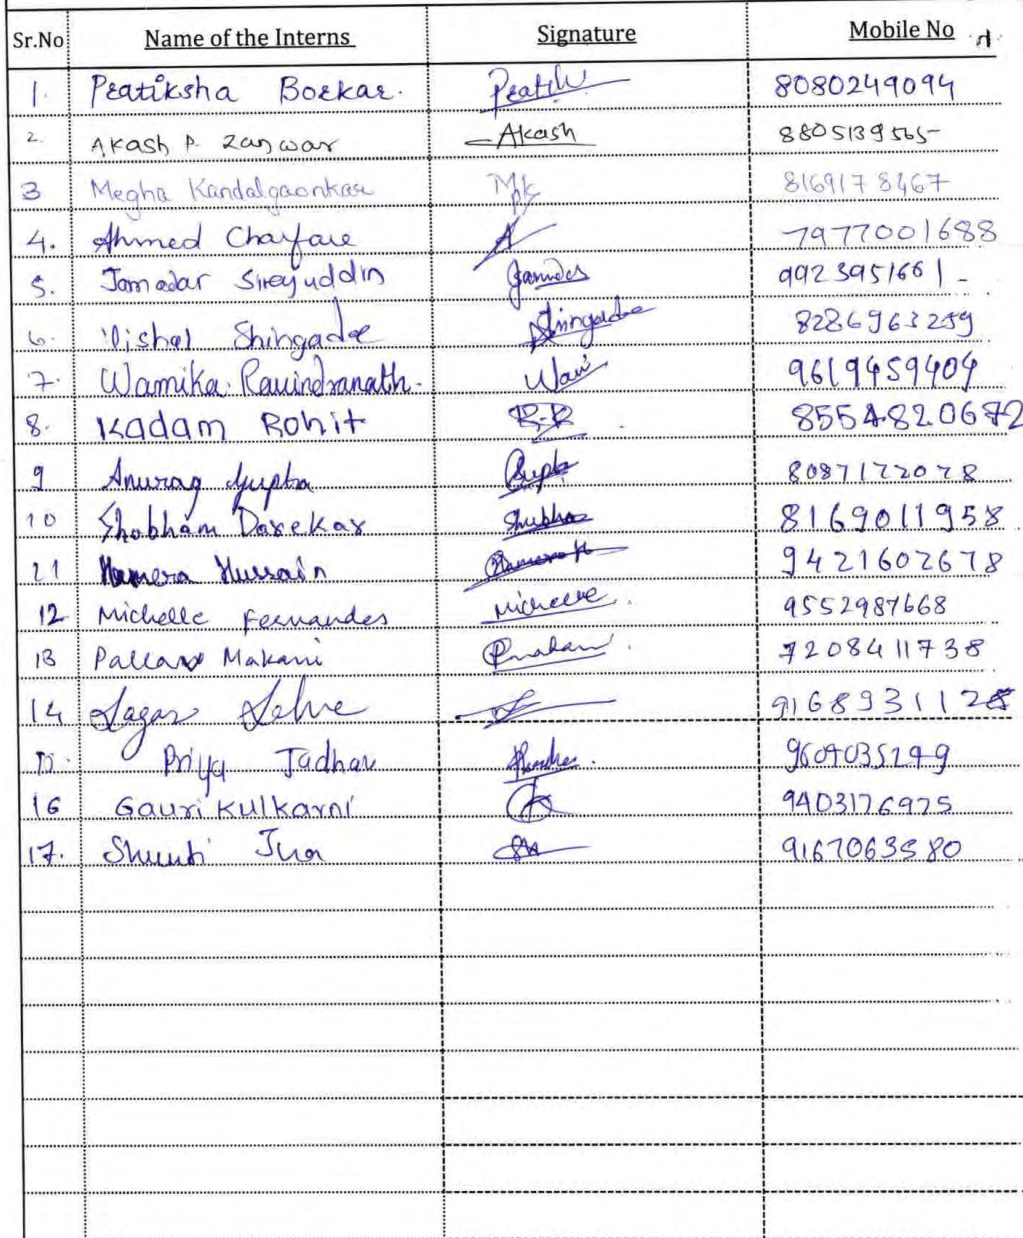 Sr.No Name of the Interns Signature Mobile No
1. Pratiksha Borkar. 8080249094
2. Akash P. Zanwar Akash 8805139565
3 Megha Kandalgaonkar Mk 8169178467
4. Ahmed Charfare 7977001688
5. Jamadar Sirajuddin 9923951661
6. Vishal Shingade Shingade 8286963259
7. Wamika Ravindranath. 9619459404
8. Kadam Rohit R.R 8554820672
9 Anurag Gupta Gupta 8087172078
10 Shobham Darekar Shubha 8169011958
11 Humera Hussain 9421602678
12 Michelle Fernandes Michelle 9552987668
13 Pallavi Makani 7208411738
14 Sagar 9168931128
15. Priya Jadhav
16 Gauri Kulkarni 9403176975
17. 9167063580